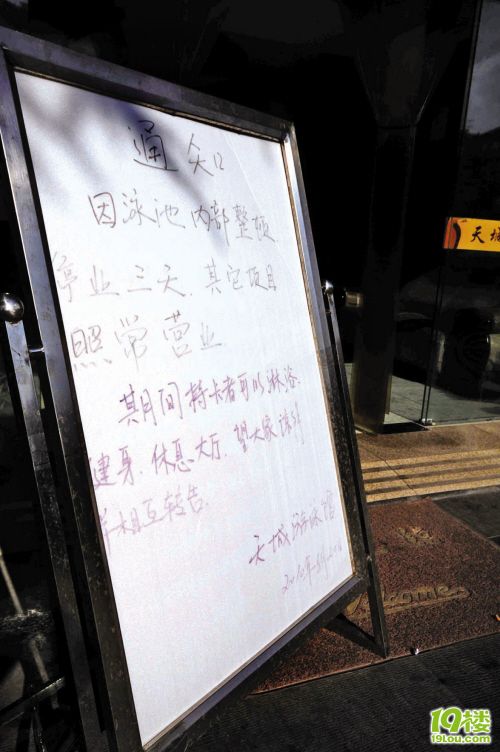 通知
因泳池内部整顿
停业三天.其它项目
照常营业
期间持卡者可以淋浴、
健身.休息大厅.望大家谅解
并相互转告.
天城游泳馆
天城
Welcome
19楼
19lou.com